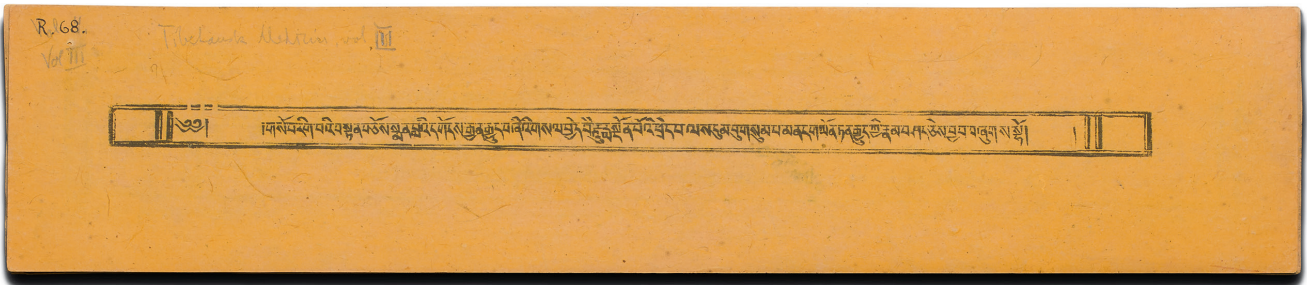 R. 68.
Tibetansk Medicin, vol III
Vol III
༄༅། །གསོ་བ་རིག་པའི་བསྟན་བཅོས་སྨན་བླའི་དགོངས་རྒྱན་རྒྱུད་བཞིའི་གསལ་བྱེད་བཻཌཱུརྻ་སྔོན་པོའི་ཕྲེང་བ་ལས་དུམ་བུ་གསུམ་པ་མན་ངག་ཡོན་ཏན་རྒྱུད་ཀྱི་རྣམ་བཤད་ཅེས་བྱ་བ་བཞུགས་སོ། །